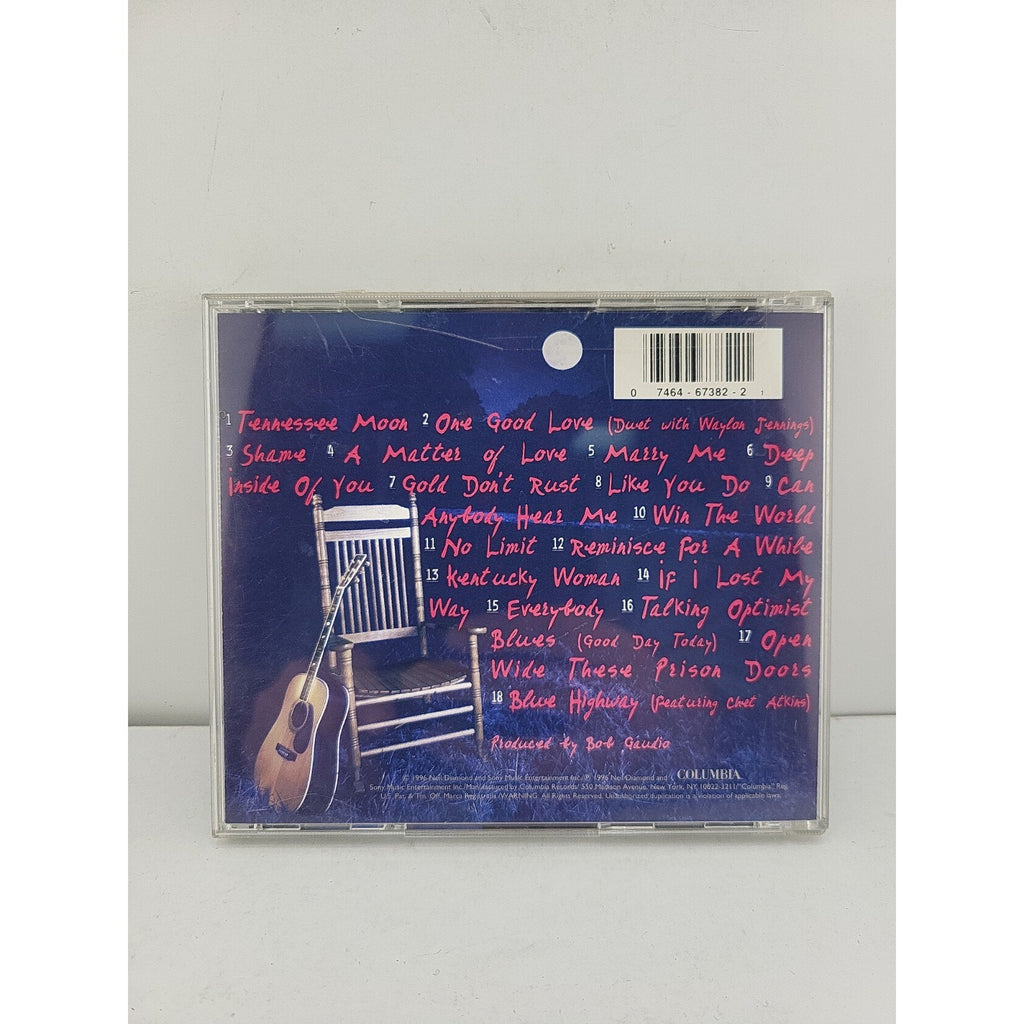 0 7464-67382-2 1
1 Tennessee Moon 2 One Good Love (Duet with Waylon Jennings)
3 Shame 4 A Matter of Love 5 Marry Me 6 Deep
Inside Of You 7 Gold Don't Rust 8 Like You Do 9 Can
Anybody Hear Me 10 Win The World
11 No Limit 12 Reminisce For A While
13 Kentucky Woman 14 If I Lost My
Way 15 Everybody 16 Talking Optimist
Blues (Good Day Today) 17 Open
Wide These Prison Doors
18 Blue Highway (Featuring Chet Atkins)
Produced by Bob Gaudio
© 1996 Neil Diamond and Sony Music Entertainment Inc./℗ 1996 Neil Diamond and COLUMBIA
Sony Music Entertainment Inc./Manufactured by Columbia Records/ 550 Madison Avenue, New York, NY 10022-3211/"Columbia" Reg.
U.S. Pat. & Tm. Off. Marca Registrada./WARNING: All Rights Reserved. Unauthorized duplication is a violation of applicable laws.